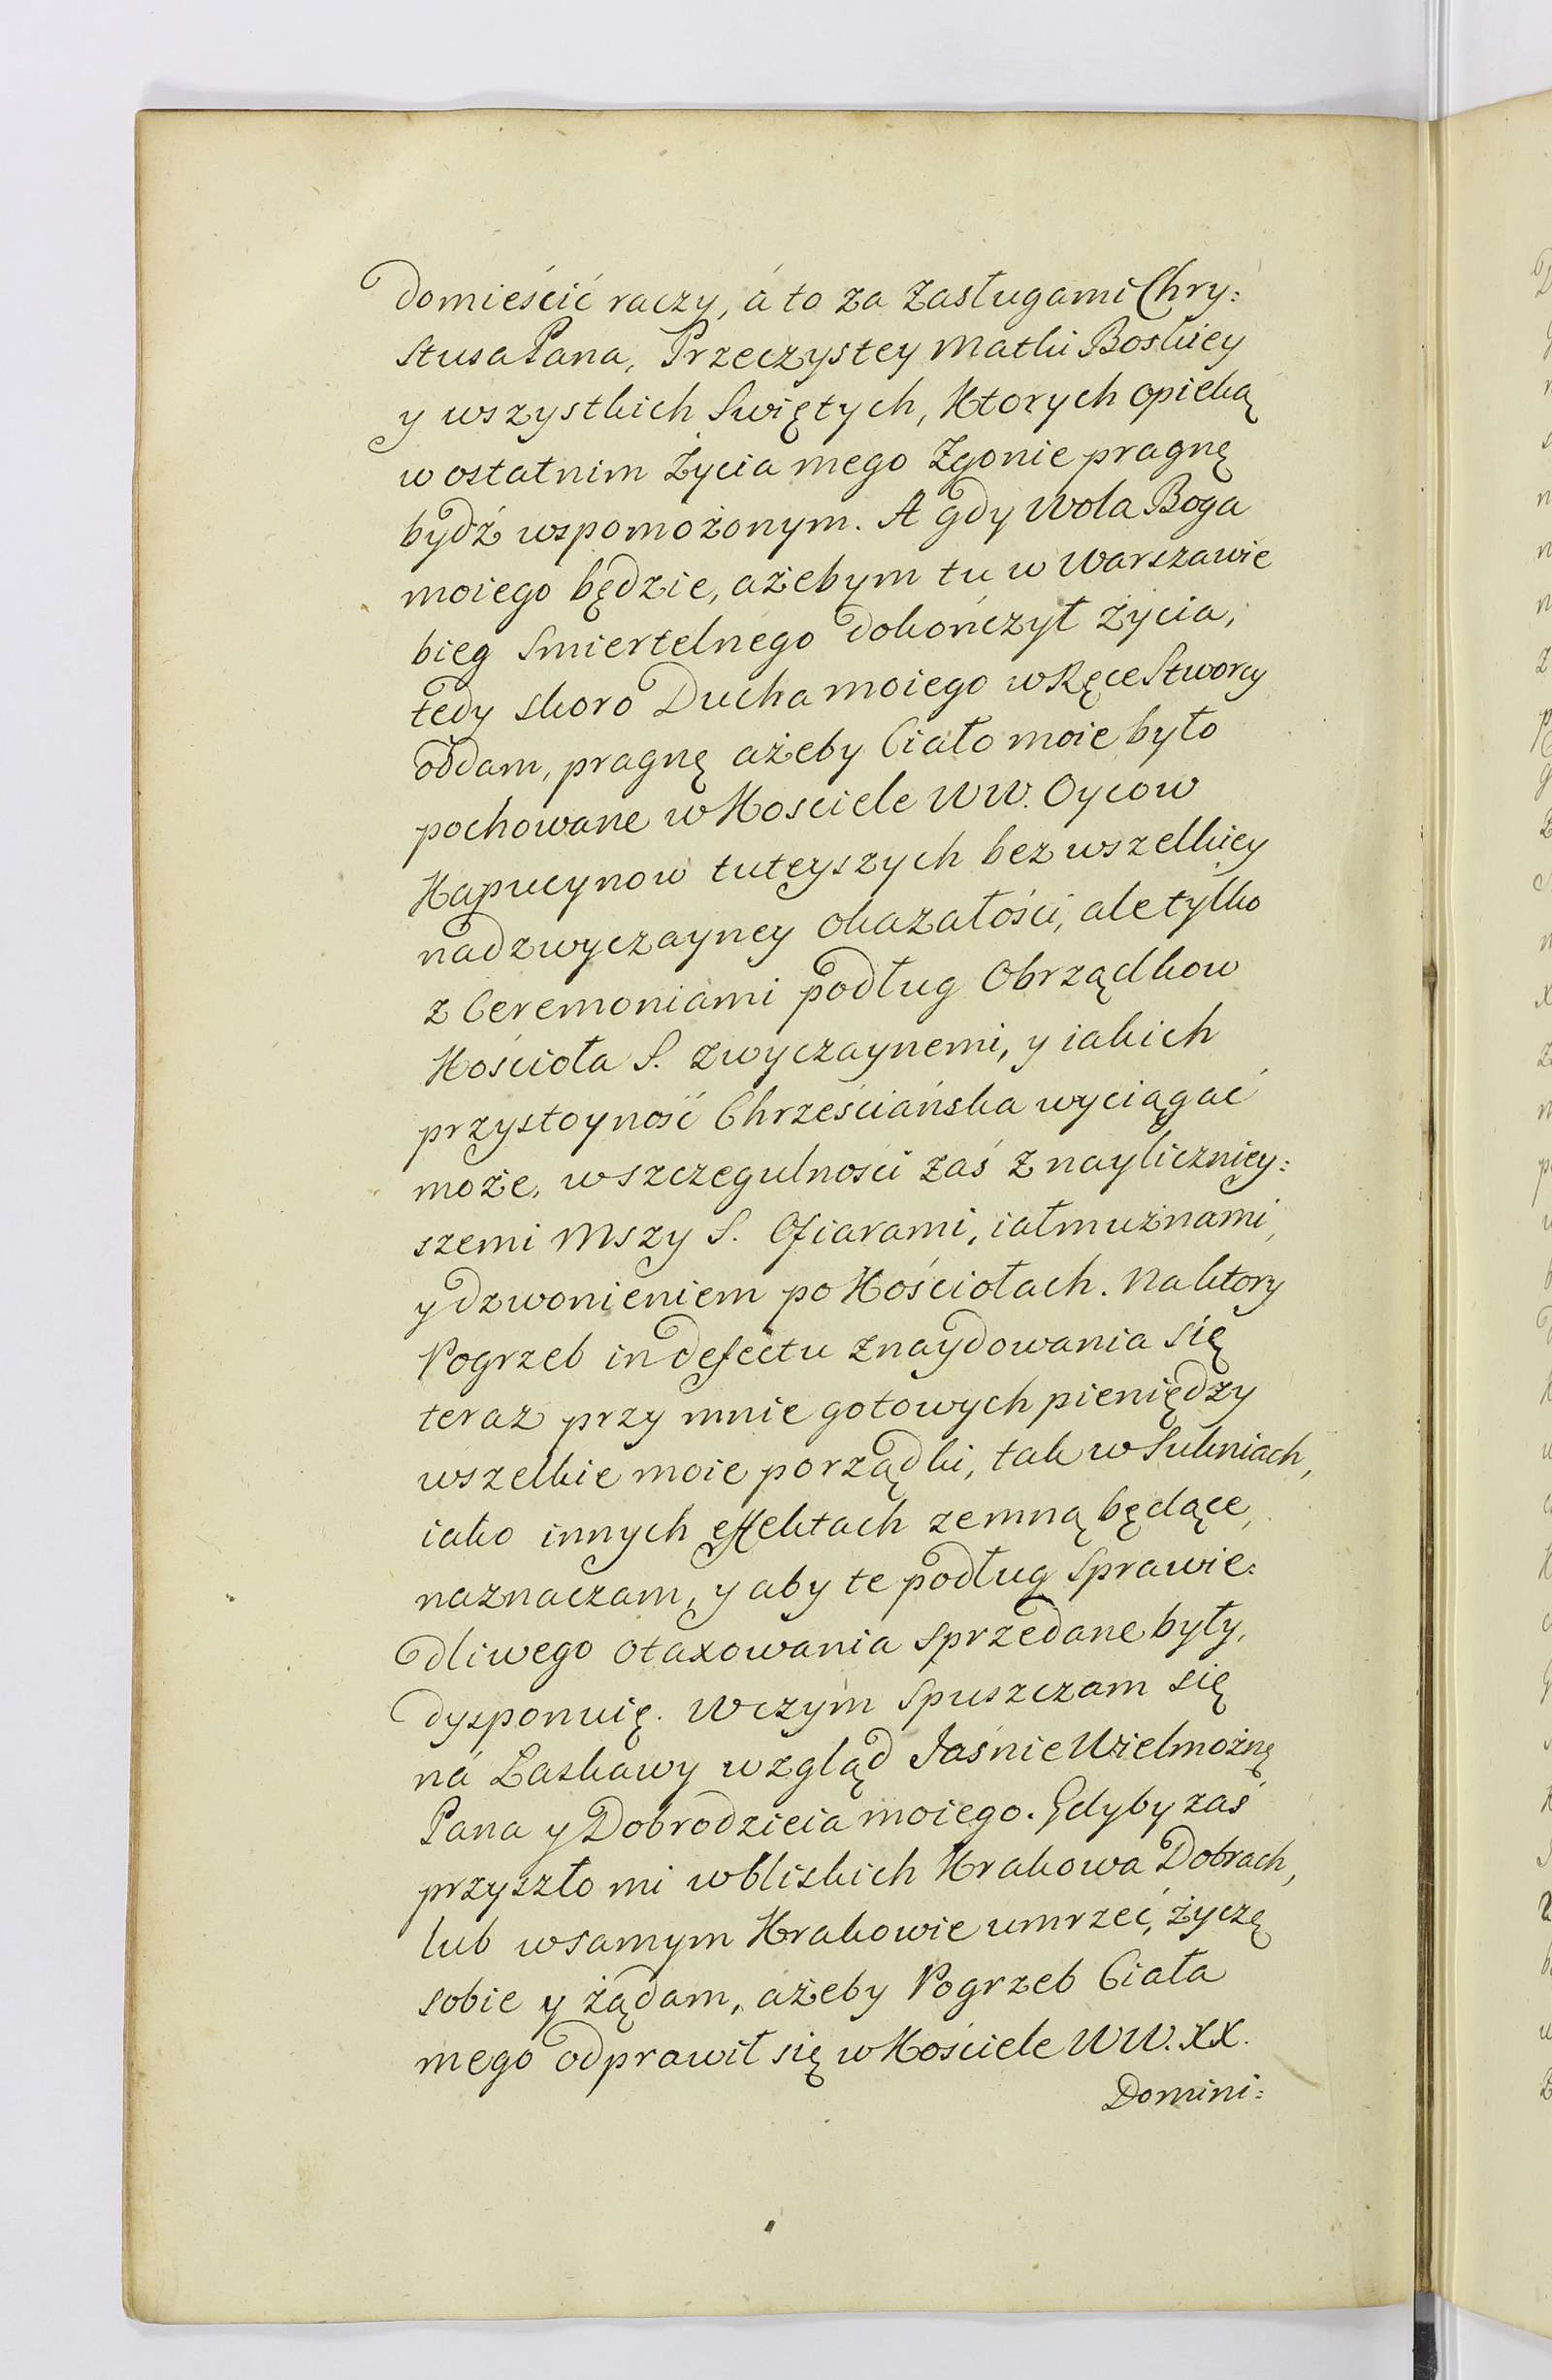 domieścić raczy, á to za Zasługami Chry:
stusa Pana, Przeczystey Matki Boskiey
y wszystkich Swiętych, Ktorych opieką
w ostatnim Życia mego Zgonie pragnę
bydź wspomożonym. A gdy Wola Boga
moiego będzie, ażebym tu w Warszawie
bieg Smiertelnego dokończył życia,
tedy skoro Ducha moiego w Ręce Stworcy
oddam, pragnę ażeby Ciało moie było
pochowane w Kosciele WW. Oycow
Kapucynow tuteyszych bez wszelkiey
nadzwyczayney okazałości, ale tylko
z Ceremoniami podług Obrządkow
Kościoła S. zwyczaynemi, y iakich
przystoyność Chrześciańska wyciągać
może, w szczegulności zaś z nayliczniey:
szemi Mszy S. Ofiarami, iałmużnami,
y dzwonieniem po Kościołach. Na ktory
Pogrzeb in defectu znaydowania się
teraz przy mnie gotowych pieniędzy
wszelkie moie porządki, tak w Sukniach,
iako innych effektach zemną będące,
naznaczam, y aby te podług sprawie:
dliwego otaxowania sprzedane były,
dysponuię. W czym spuszczam się
ná Łaskawy wzgląd Jaśnie Wielmożnę
Pana y Dobrodzieia moiego. Gdyby zaś
przyszło mi w bliskich Krakowa Dobrach,
lub w samym Krakowie umrzeć, życzę
sobie y żądam, ażeby Pogrzeb Ciała
mego odprawił się w Kościele WW. XX.
Domini: